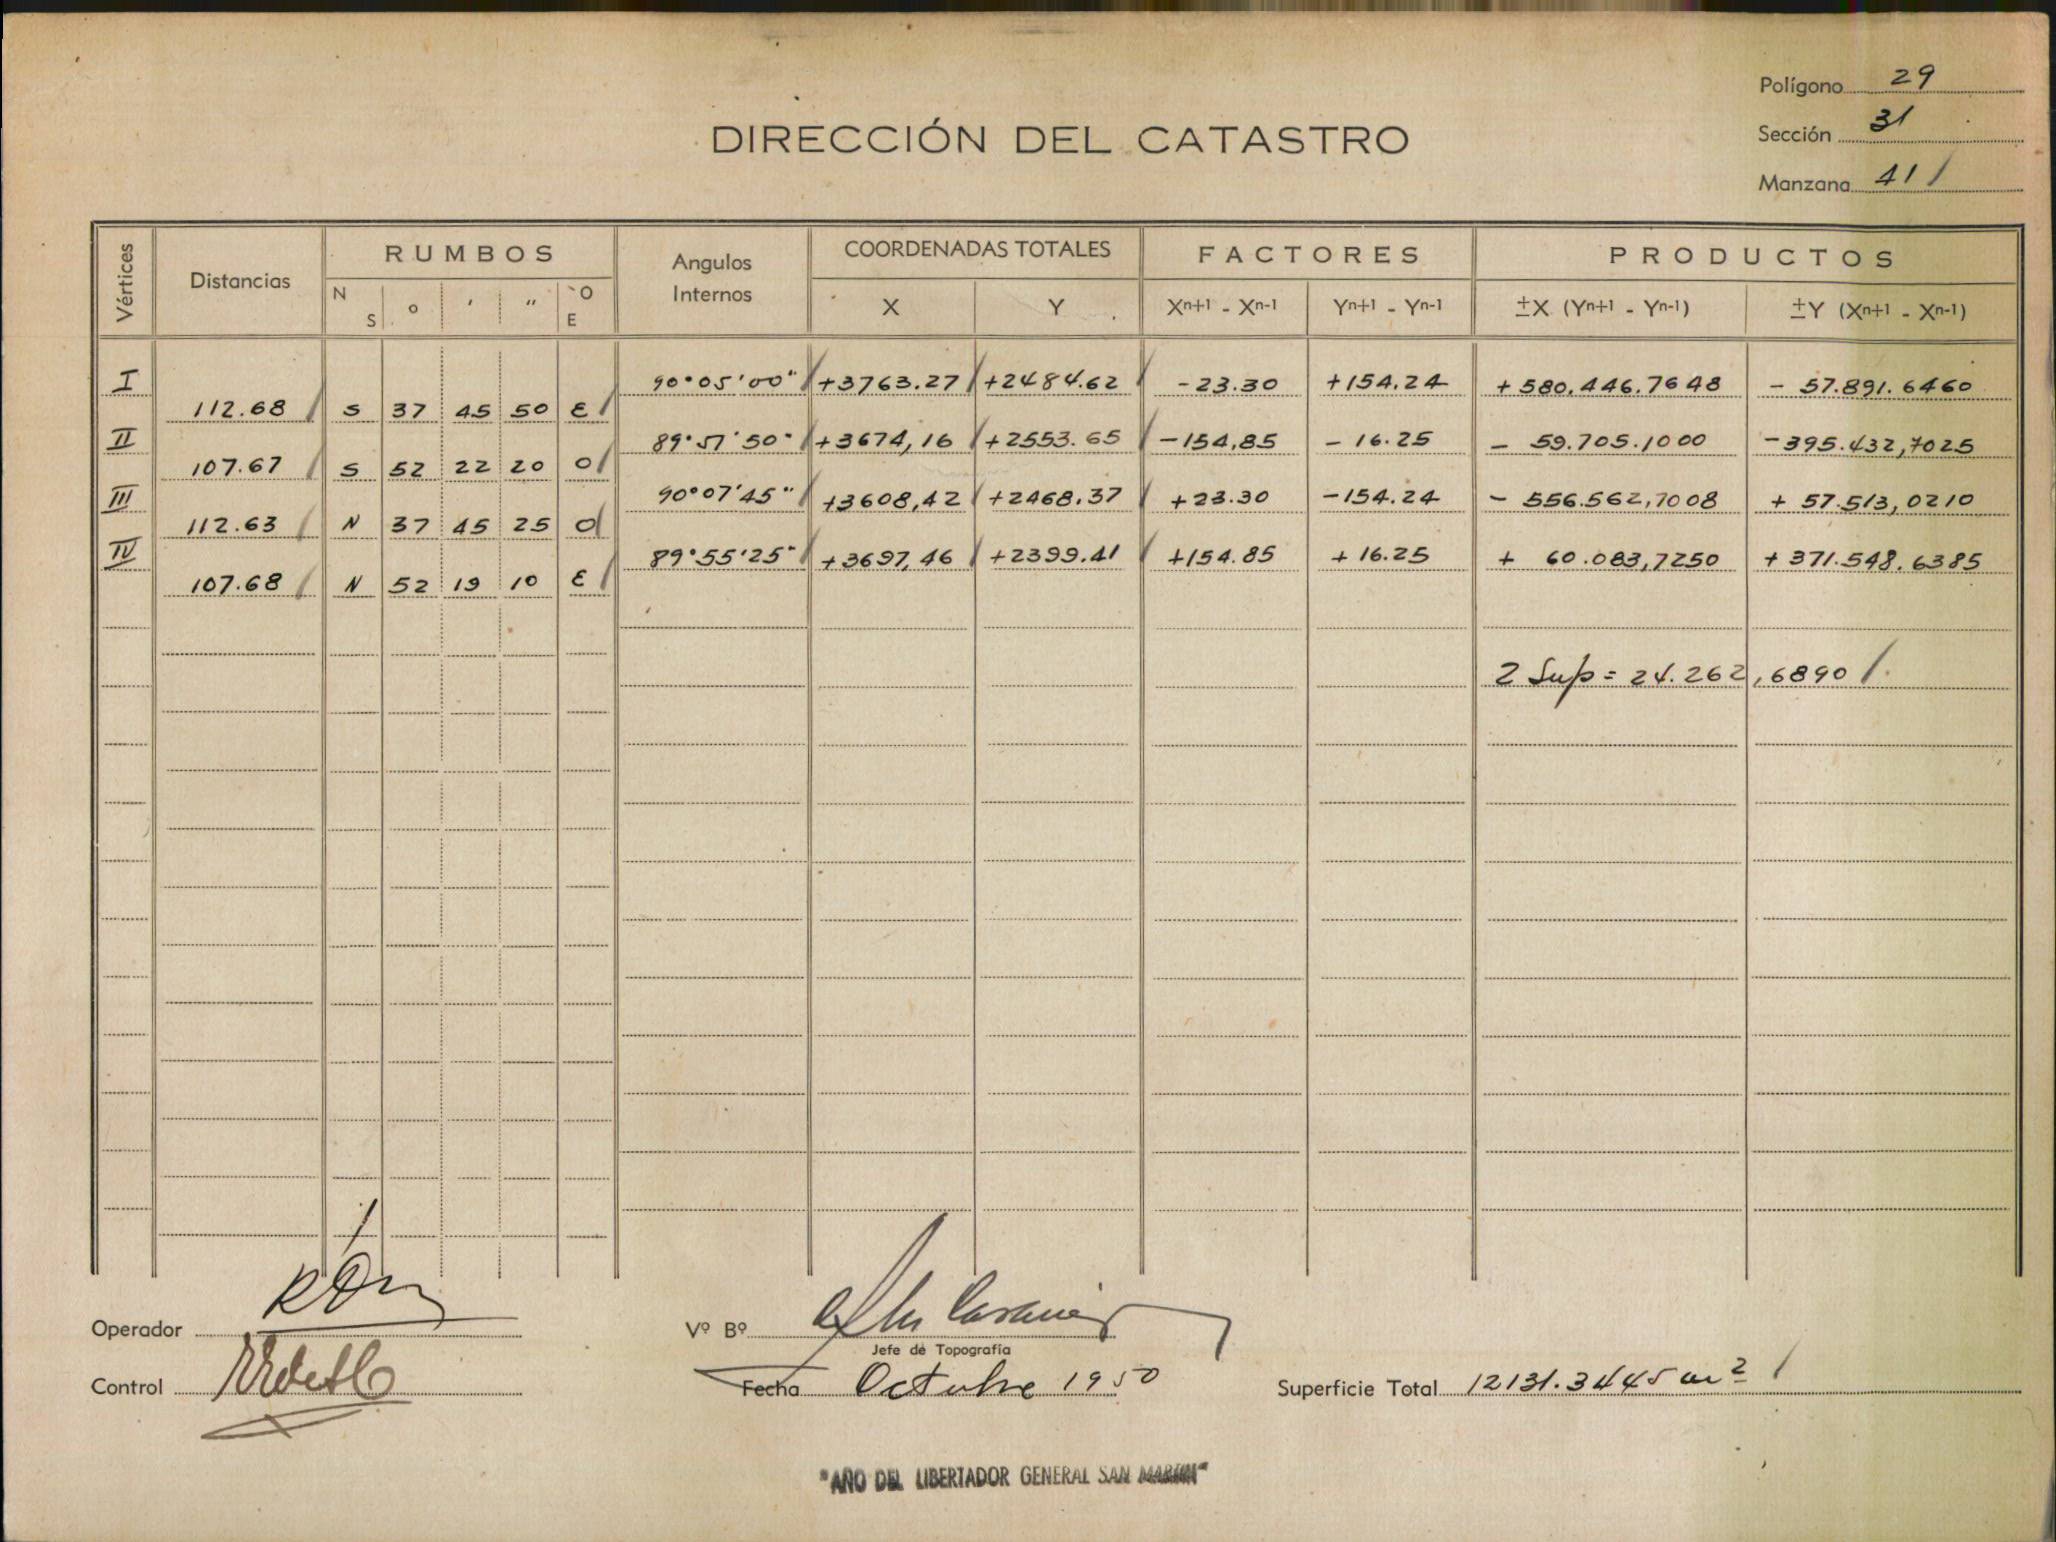 Polígono 29
Sección 31
Manzana 41
DIRECCIÓN DEL CATASTRO
Vértices Distancias RUMBOS Angulos Internos COORDENADAS TOTALES FACTORES PRODUCTOS
N S o ' " O E X Y Xn+1 - Xn-1 Yn+1 - Yn-1 ±X (Yn+1 - Yn-1) ±Y (Xn+1 - Xn-1)
I 90°05'00" +3763.27 +2484.62 -23.30 +154.24 +580,446.7648 - 57.891.6460
112.68 S 37 45 50 E
II 89°51'50" +3674,16 +2553.65 -154,85 - 16.25 - 59.705.1000 -395.432,7025
107.67 S 52 22 20 O
III 90°07'45" +3608,42 +2468.37 +23.30 -154.24 - 556.562,7008 + 57.513,0210
112.63 N 37 45 25 O
IV 89°55'25" +3697,46 +2399.41 +154.85 +16.25 + 60.083,7250 +371.548.6385
107.68 N 52 19 10 E
2 Sup = 24.262,6890
Operador
Vº Bº
Jefe de Topografía
Control
Fecha Octubre 1950
Superficie Total 12131.3445 m2
"AÑO DEL LIBERTADOR GENERAL SAN MARTIN"